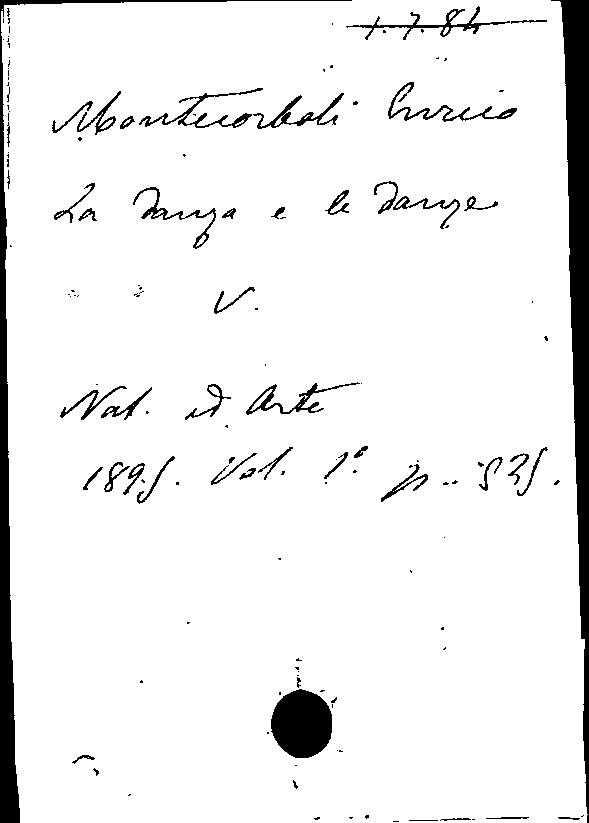 1.7.84
Montecorboli Enrico
La Danza e le Danze
V.
Nat. ed Arte
1895. Vol. 1º p.. 525.